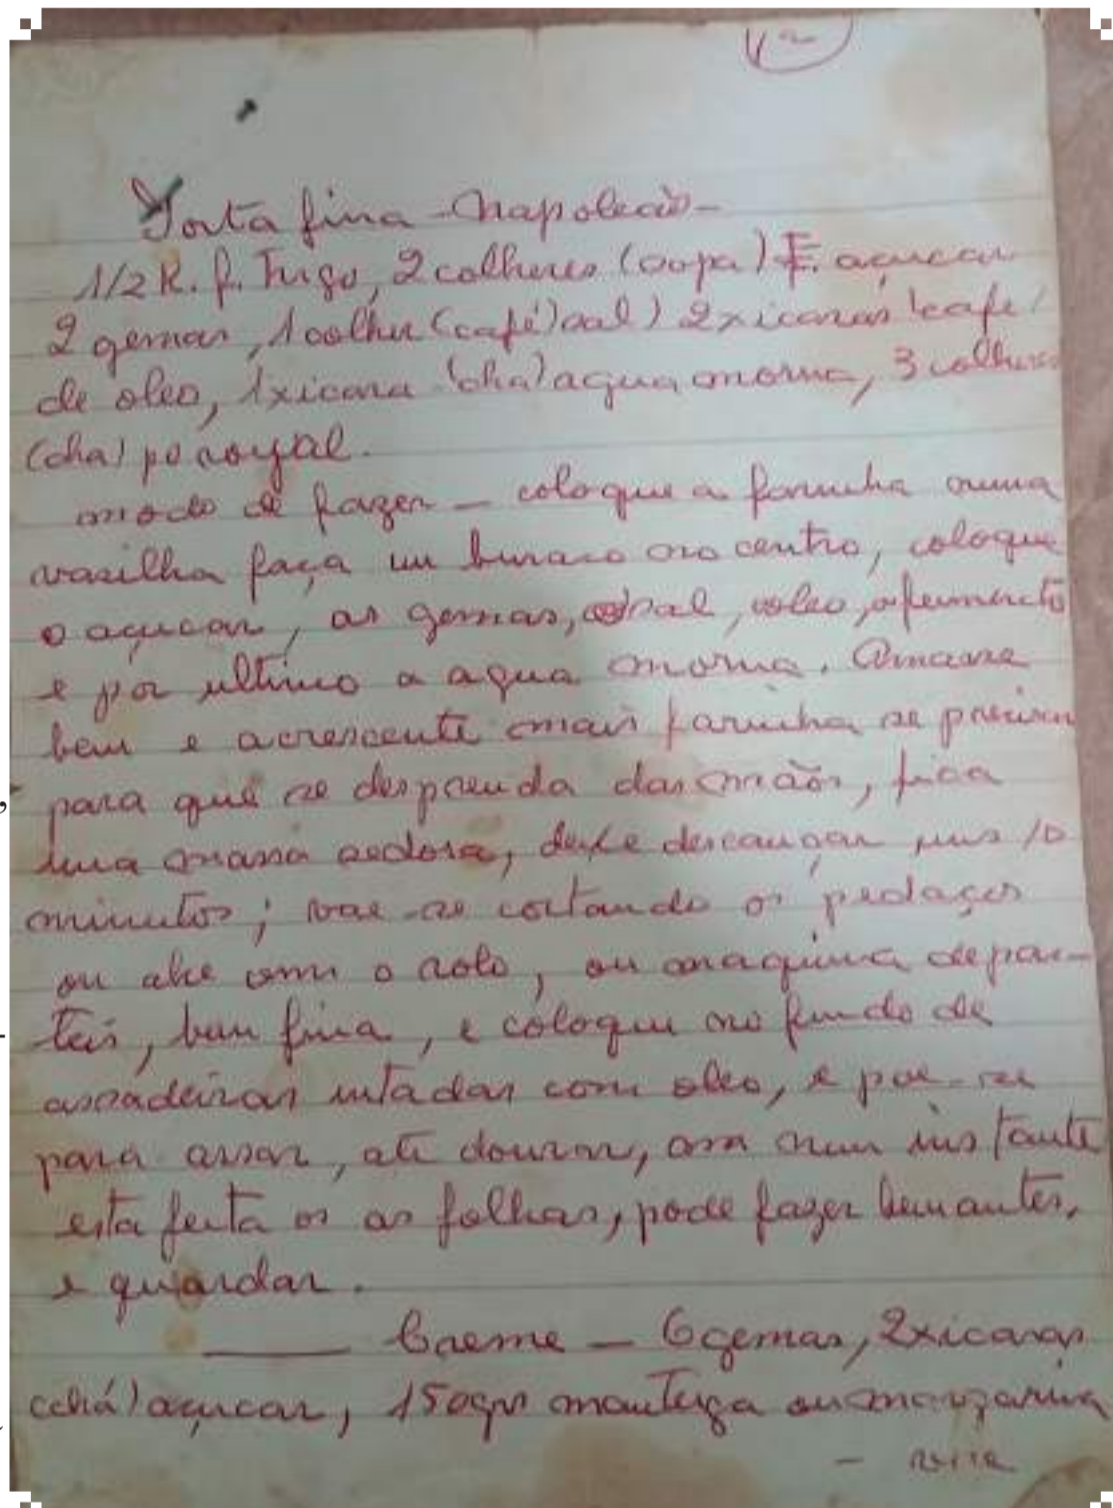 Torta fina - Napoleão -
1/2 K. f. Trigo, 2 colheres (sopa) açucar
2 gemas, 1 colher (café) sal) 2 xicaras (café)
de oleo, 1 xicara (cha) agua morna, 3 colheres
(cha) po royal.
modo de fazer - coloque a farinha numa
vasilha faça um buraco no centro, coloque
o açucar, as gemas, sal, oleo, o fermento
e por ultimo a agua morna. Amasse
bem e acrescente mais farinha se precisar
para que se desprenda das mãos, fica
uma massa sedosa, deixe descançar uns 10
minutos; vae-se cortando os pedaços
ou abre com o rolo, ou maquina de pas-
teis, bem fina, e coloque no fundo de
assadeiras untadas com oleo, e poe-se
para assar, até dourar, assa num instante
esta feita os as folhas, pode fazer bem antes,
e guardar.
Creme - 6 gemas, 2 xicaras
(chá) açucar, 150 grs manteiga ou margarina
- vire